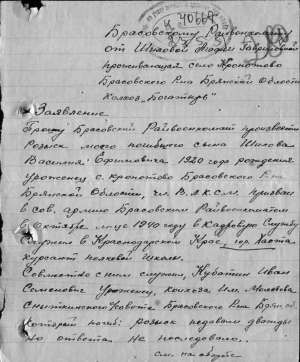 К 40664
Брасовскому Райвоенкому
от Шиховой Марфы Гавриловны
проживающая село Кропотово
Брасовского Р-на Брянской Области
Колхоз "Богатырь"
Заявление
Прошу Брасовский Райвоенкомат произвести
Розыск моего погибшего сына Шихова
Василия 1920 года рождения
Уроженец с. Кропотово Брасовского Р-на
Брянской Области, чл. В.Л.К.С.М. призван
в сов. армию Брасовским Райвоенкоматом
в Октябре м-це 1940 году в Кадровую Службу
Служил в Краснодарском Крае, гор.
курсант полковой Школы.
Совместно с ним служил, Кубаткин Иван
Семенович Уроженец, колхоза Им.
Брасовского Р-на Брян. об.
Который погиб: розыск подавали дважды
Но ответа не последовало.
см. на обороте